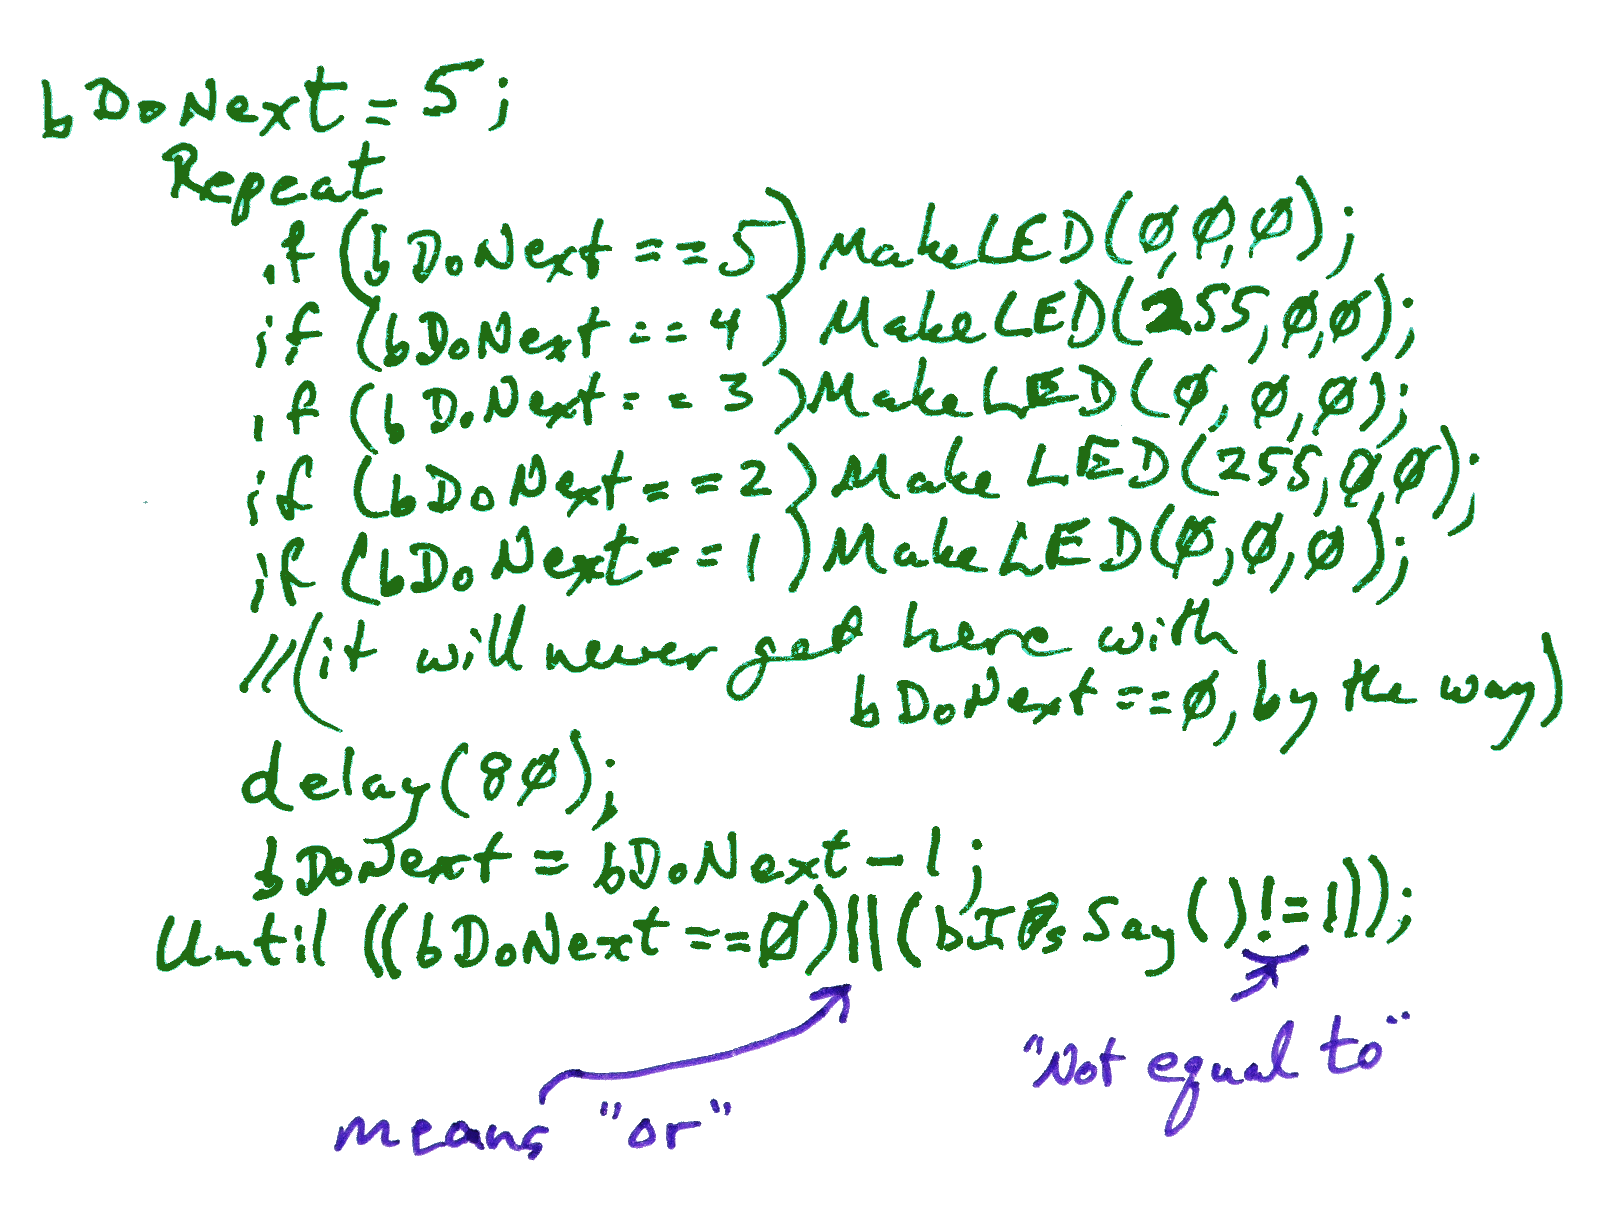 bDoNext = 5;
Repeat
if (bDoNext == 5) MakeLED(Ø,Ø,Ø);
if (bDoNext == 4) MakeLED(255,Ø,Ø);
if (bDoNext == 3) MakeLED(Ø,Ø,Ø);
if (bDoNext == 2) MakeLED(255,Ø,Ø);
if (bDoNext == 1) MakeLED(Ø,Ø,Ø);
//(it will never get here with
bDoNext == Ø, by the way)
delay(8Ø);
bDoNext = bDoNext - 1;
Until ((bDoNext == Ø) || ( != 1));
"Not equal to"
means "or"